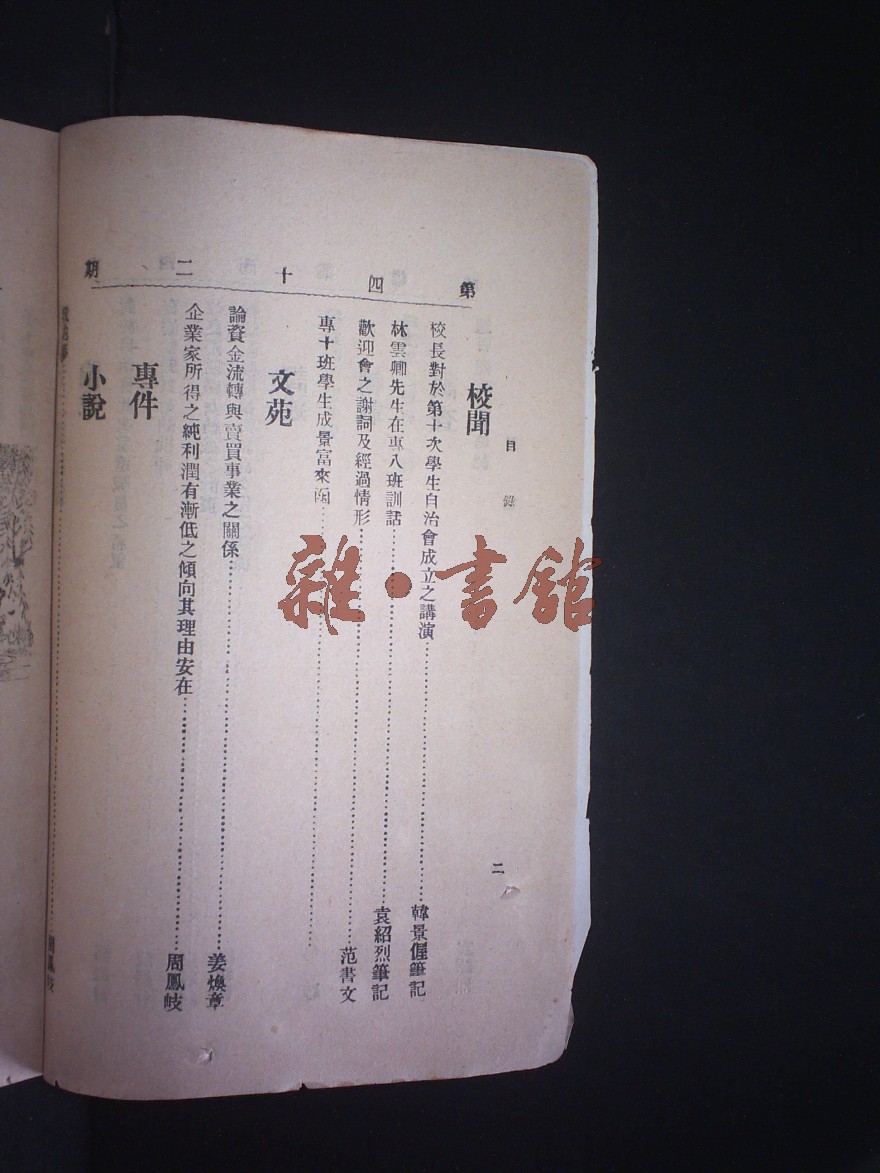 第四十二期
目錄
二
校聞
校長對於第十次學生自治會成立之講演……韓景偓筆記
林雲卿先生在專八班訓話……袁紹烈筆記
歡迎會之謝詞及經過情形……范書文
專十班學生成景富來函……
文苑
論資金流轉與賣買事業之關係……姜煥章
企業家所得之純利潤有漸低之傾向其理由安在……周鳳岐
專件
小說
周鳳岐
雜·書館